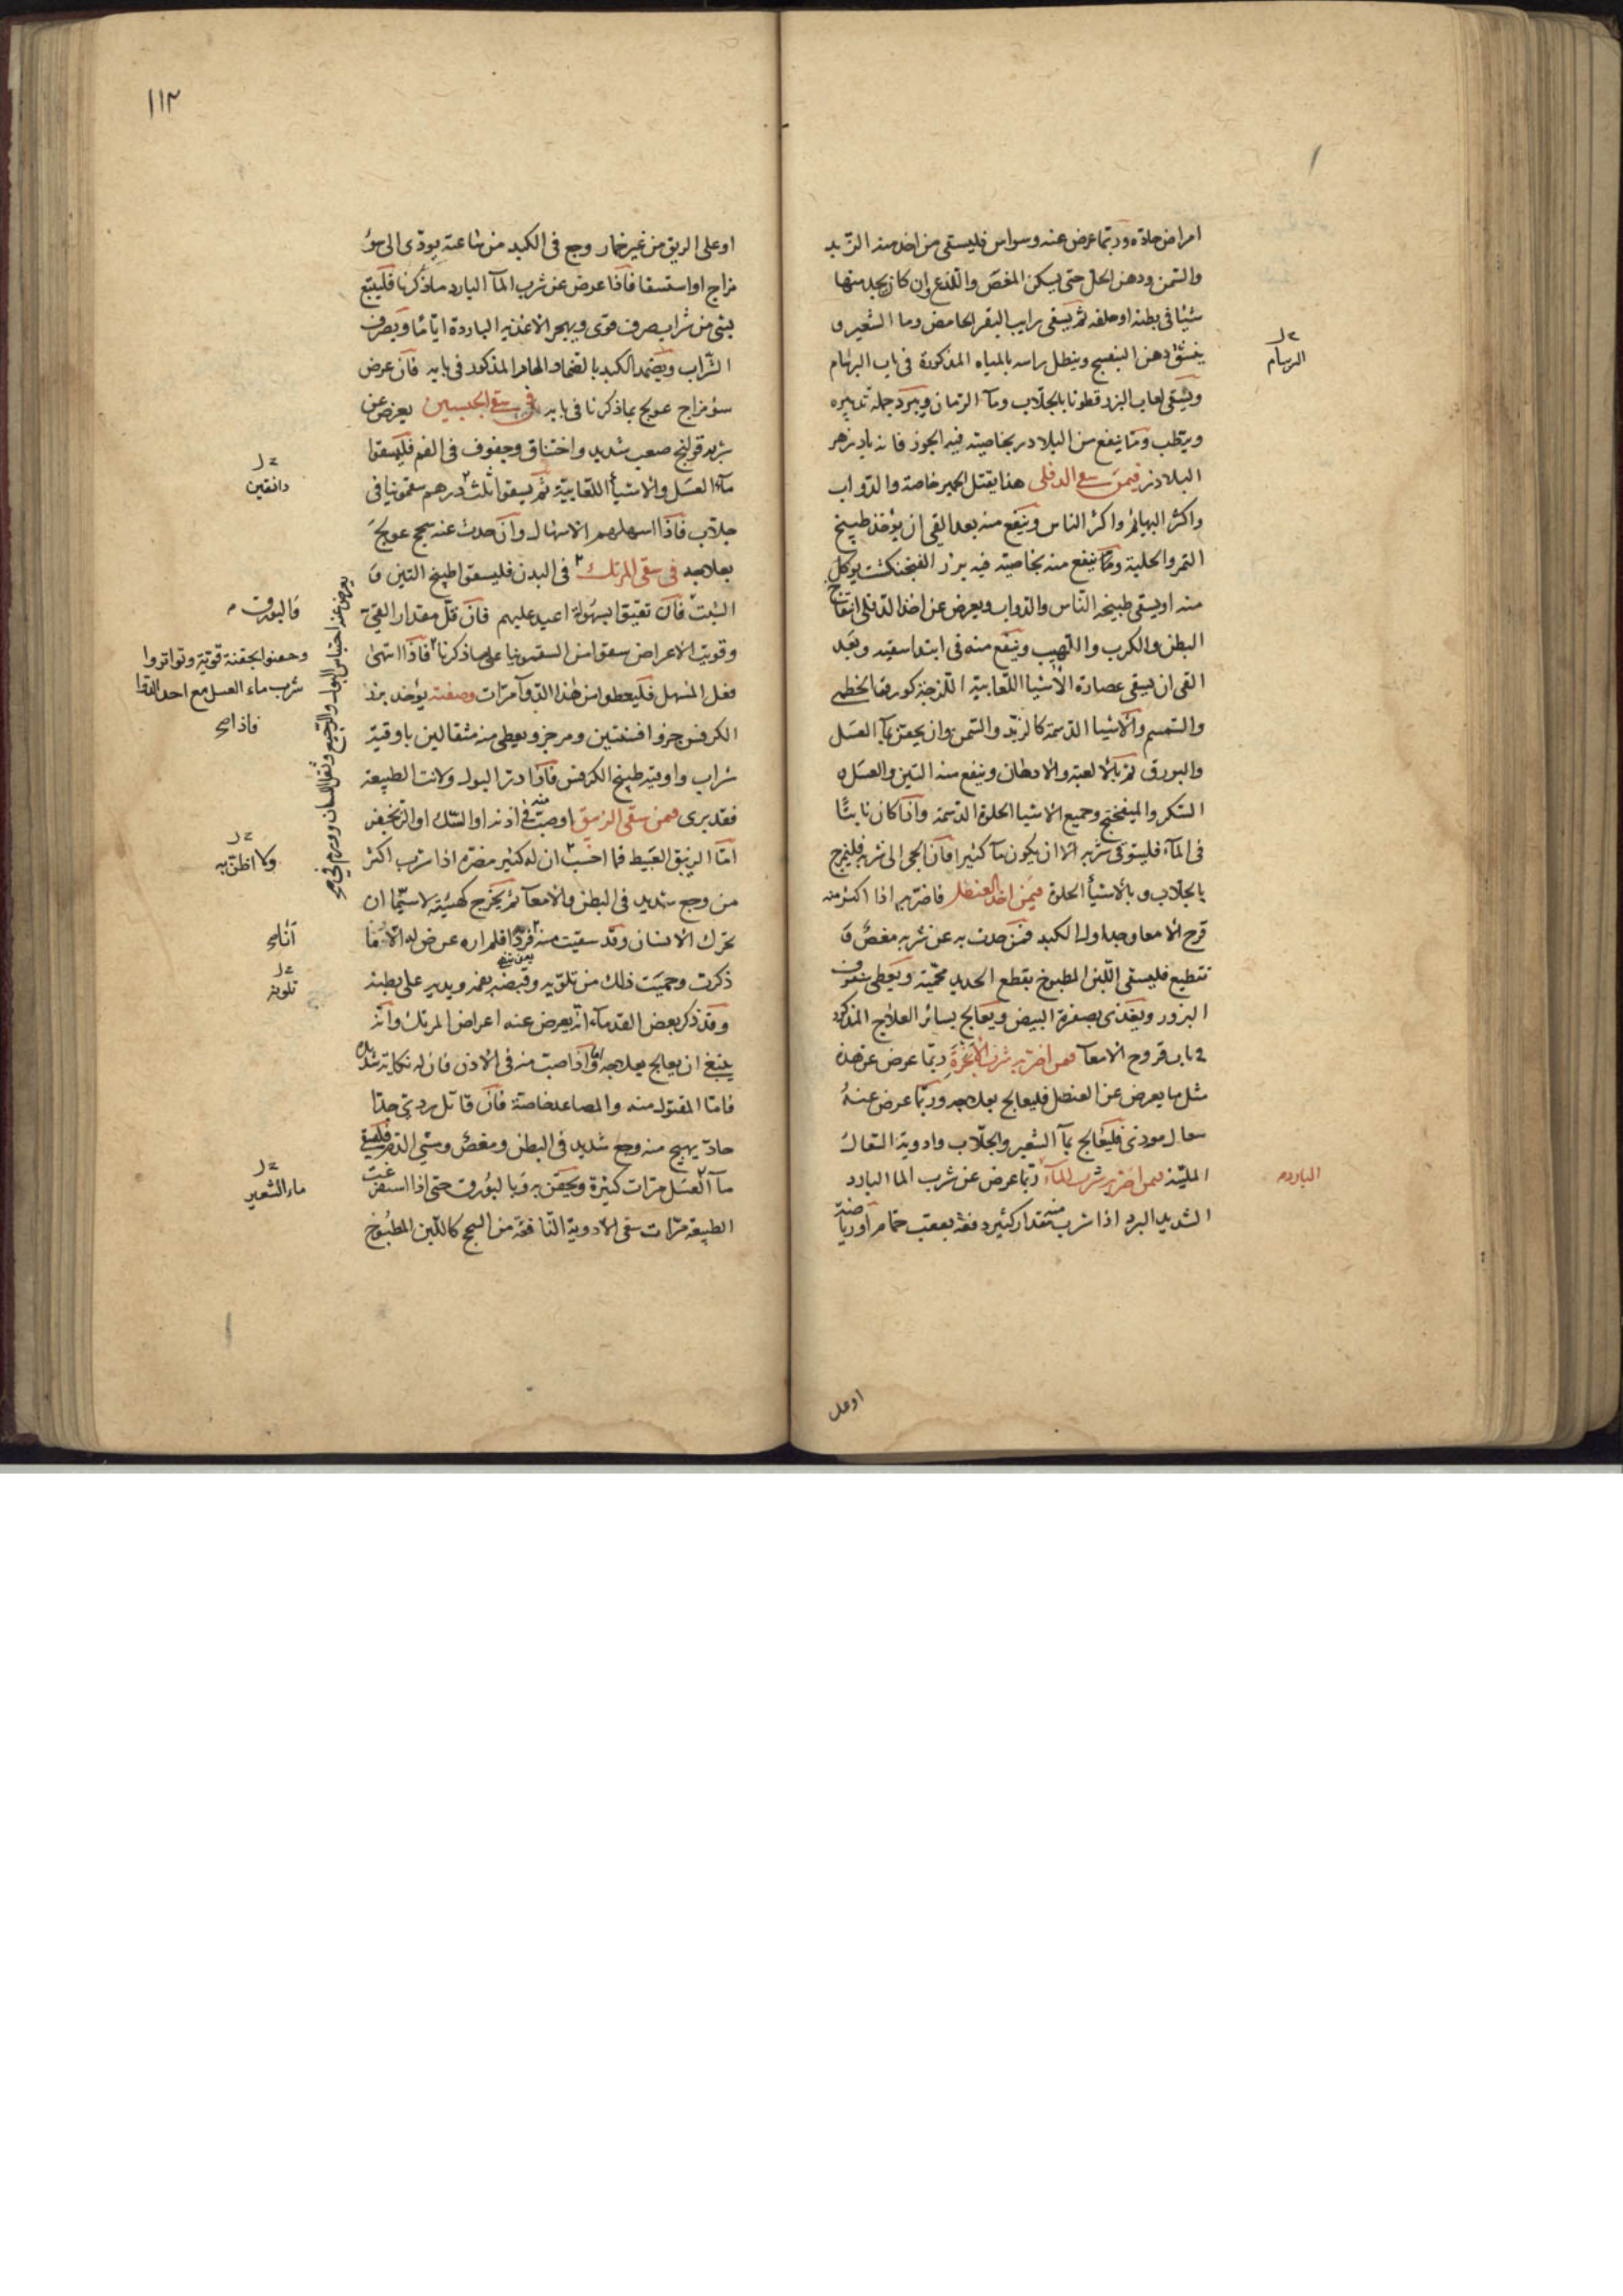 امراض حادة وربما عرض عنه وسواس فليسقى من اخذ منه الزبد
والسمن ودهن الحل حتى يسكن المغص واللذع وان كان يجد منها
شيئا فى بطنه او حلقه ثم يسقى رايب البقر الحامض وما الشعير و
ينشق دهن البنفسج وينطل راسه بالمياه المذكورة فى باب البرسام
ويسقى لعاب البزرقطونا بالجلاب وما الرمان ويبرد جملة تدبيره
ويرطب ومما ينفع من البلادر بخاصيته فيه الجوز فانه بادزهر
البلادر فيمن سقى الدفلى هذا يقتل الحمير خاصة والدواب
واكثر البهائم واكثر الناس وينفع منه بعد القى ان يؤخذ طبيخ
التمر والحلبة ومما ينفع منه بخاصيته فيه بزر الفنجنكشت يوكل
منه او يسقى طبيخه الناس والدواب ويعرض عن اخذ الدفلى انتفاخ
البطن والكرب واللهيب وينفع منه فى ابتدا سقيه وبعد
القى ان يسقى عصارة الاشيا اللعابية اللزجة كورق الخطمى
والسمسم والاشيا الدسمة كالزبد والسمن وان يحقن بمآ العسل
والبورق ثم بالالعبة والادهان وينفع منه التين والعسل و
السكر والميفختج وجميع الاشيا الحلوة الدسمة واذا كان نابتًا
فى المآء فليتوقى شربه الا ان يكون مآ كثيرا فان الجى الى شربه فليمزج
بالجلاب وبالاشيأ الحلوة فيمن اخذ الحنظل فاضر به اذا اكثر منه
قرح الامعا وجداول الكبد فمن حدث به عن شربه مغص و
تقطيع فليسقى اللبن المطبوخ بقطع الحديد محمية ويعطى سفوف
البزور ويغذى بصفرة البيض ويعالج بسائر العلاج المذكور
فى باب قروح الامعا فيمن اضر به شرب الانجرة ربما عرض عن هذه
مثل ما يعرض عن الحنظل فليعالج بعلاجه وربما عرض عنه
سعال موذى فليعالج بمآ الشعير والجلاب وادوية السعال
الملينة فيمن اضر به شرب المآء ربما عرض عن شرب الما البارد
الشديد البرد اذا شرب منه مقدار كثير دفعة بعقب حمام او رياضة
ـل
البرسام
الباردة
اوعلى
١١٣
او على الريق من غير خمار وجع فى الكبد من ساعته يودى الى سوء
مزاج او استسقا فاذا عرض عن شرب المآ البارد ما ذكرنا فليتبع
بشى من شراب صرف قوى ويهجر الاغذيه الباردة اياما ويصرف
الشراب ويضمد الكبد بالضماد الحار المذكور فى بابه فان عرض
سؤ مزاج عولج بما ذكرنا فى بابه فى سقى الجبسين يعرض عن
شربه قولنج صعب شديد واختناق وجفوف فى الفم فليسقوا
مآء العسل والاشيأ اللعابية ثم يسقوا ثلث درهم سقمونيا فى
جلاب فاذا اسهلهم الاسهال وان حدث عنه سحج عولج
بعلاجه فى سقى المرتك فى البدن فليسقوا طبيخ التين و
الشبت فان تقيؤا بسهولة اعيد عليهم فان قل مقدار القى
وقويت الاعراض سقوا من السقمونيا على ما ذكرنا فاذا انتهى
فعل المسهل فليعطوا من هذا الدوآ مرات وصفته يؤخذ بزر
الكرفس جزو افسنتين ومر جزو يعطى منه مثقالين باوقية
شراب واوقية طبيخ الكرفس فاذا در البول ولانت الطبيعة
فقد برى فيمن سقى الزيبق او صب منه فى اذنه او الشك او الزنجفر
اما الزيبق العبيط فما احسب ان له كثير مضرة اذا شرب اكثر
من وجع شديد فى البطن والامعآ ثم يخرج كهيئته لاسيما ان
تحرك الانسان وقد سقيت منه قردا فلم اره عرض له الا ما
ذكرت وحميت ذلك من تلويه وقبضه بفمه ويديه على بطنه
وقد ذكر بعض القدمآء انه يعرض عنه اعراض المرتك وانه
ينبغى ان يعالج بعلاجه واما اذا صب منه فى الاذن فان له نكاية شديدة
فاما المقتول منه والمصاعد خاصة فان قاتل ردى جدا
حاد يهيج منه وجع شديد فى البطن ومغص ومشى الدم فليسقى
مآ العسل مرات كثيرة ويحقن به وبالبورق حتى اذا استفرغت
الطبيعة مرات سقى الادوية النافعة من السحج كاللبن المطبوخ
ـل
دانقين
فالبورق
وحقنوا بحقنة قوية وتواتروا
شرب ماء العسل مع احد
فاذا صح
يعرض عنه احتباس البول والرجيع وثقل اللسان وورم
ـل
ولا اظن به
ـل
تلويه
ـل
ماء الشعير